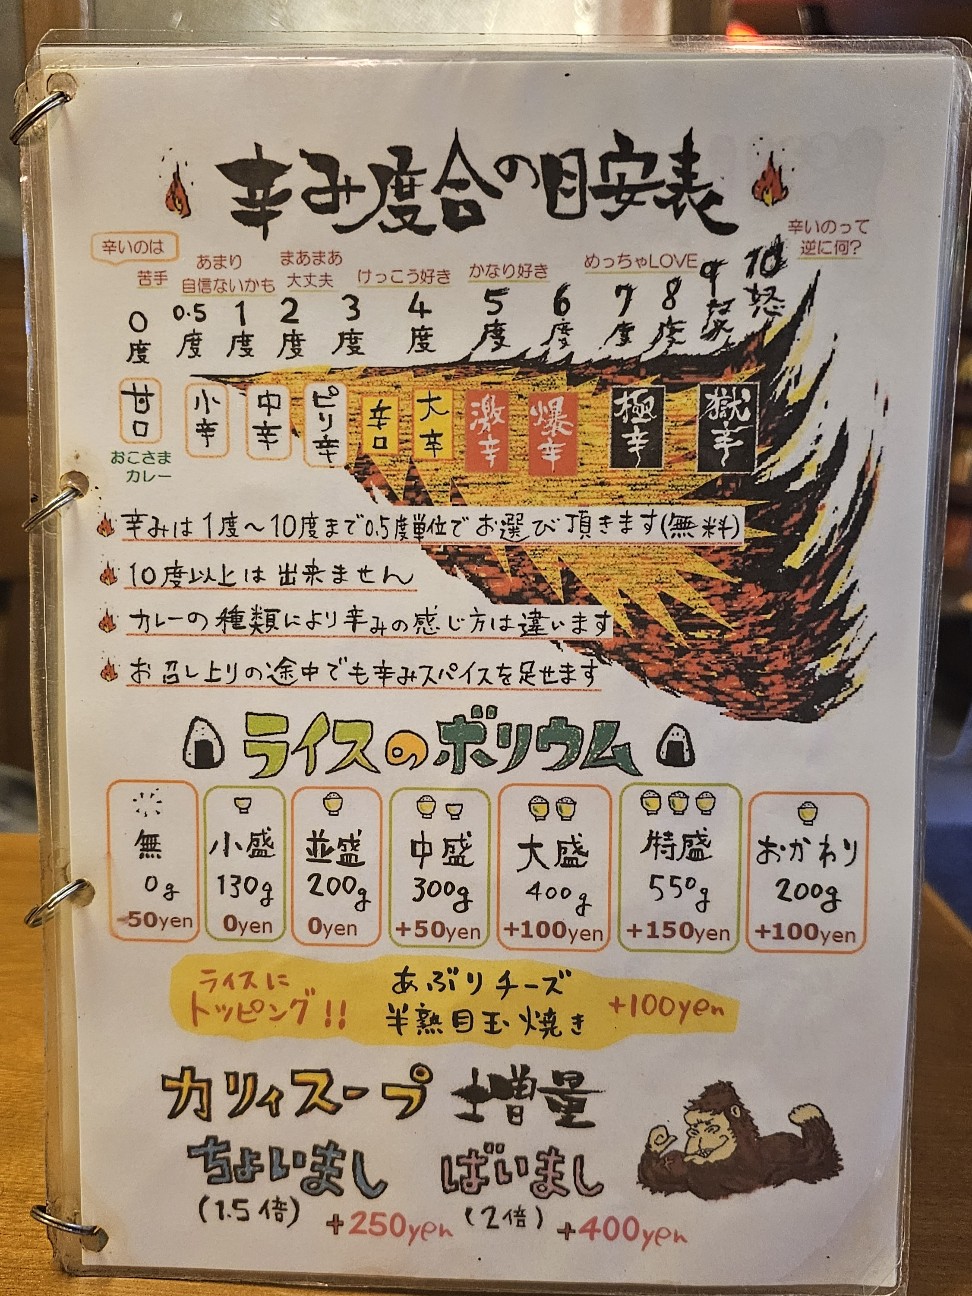 辛み度合の目安表
辛いのは
苦手
あまり
自信ないかも
まあまあ
大丈夫
けっこう好き
かなり好き
めっちゃLOVE
辛いのって
逆に何?
0度
0.5度
1度
2度
3度
4度
5度
6度
7度
8度
9怒
10怒
甘口
小辛
中辛
ピリ辛
辛口
大辛
激辛
爆辛
極辛
獄辛
おこさま
カレー
辛みは1度〜10度まで0.5度単位でお選び頂きます(無料)
10度以上は出来ません
カレーの種類により辛みの感じ方は違います
お召し上りの途中でも辛みスパイスを足せます
ライスのボリウム
無
0g
-50yen
小盛
130g
0yen
並盛
200g
0yen
中盛
300g
+50yen
大盛
400g
+100yen
特盛
550g
+150yen
おかわり
200g
+100yen
ライスに
トッピング!!
あぶりチーズ
半熟目玉焼き
+100yen
カリィスープ 増量
ちょいまし
(1.5倍)
+250yen
ばいまし
(2倍)
+400yen